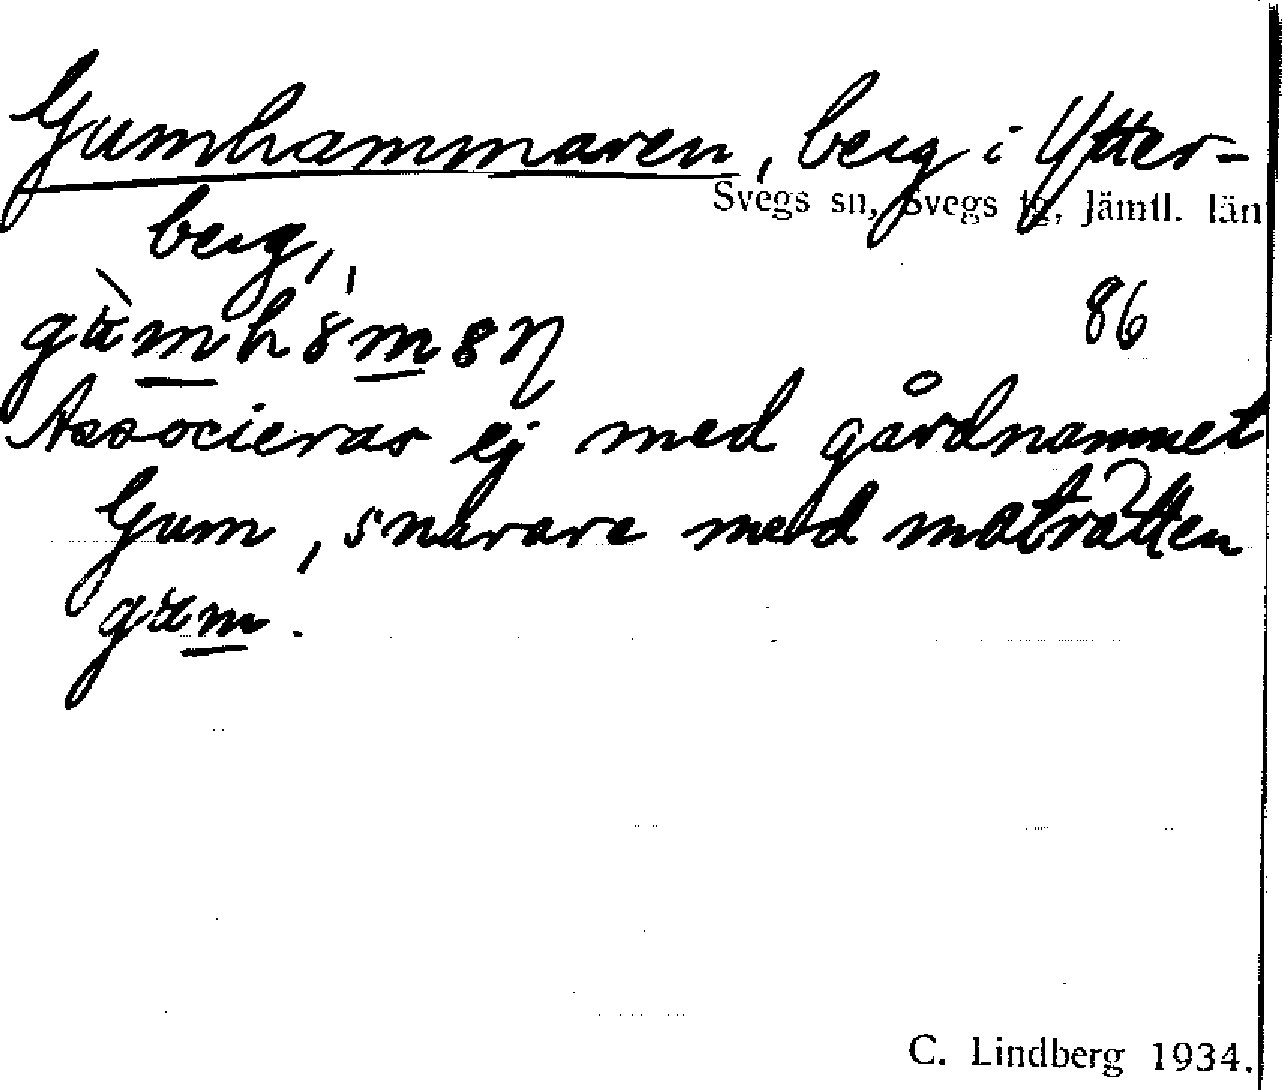 Gumhammaren, berg i Ytter-
Svegs sn, Svegs tg, Jämtl. län
berg,
86
Associeras ej med gårdnamnet
Gum, snarare med maträtten
gum.
C. Lindberg 1934.